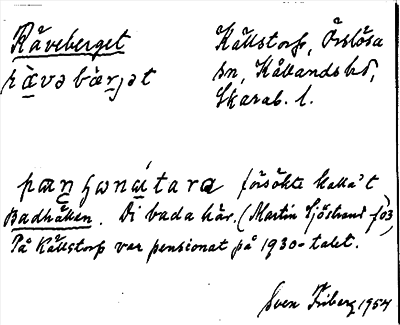 Räveberget
rävə bærjət
Källstorp, Örslösa
sn, Kållands hd,
Skarab. l.
pæŋʃonátara försökte kalla't
Badhällen. Di bada här. (Martin Sjöstrand f. 03)
På Källstorp var pensionat på 1930-talet.
Sven Friberg 1954